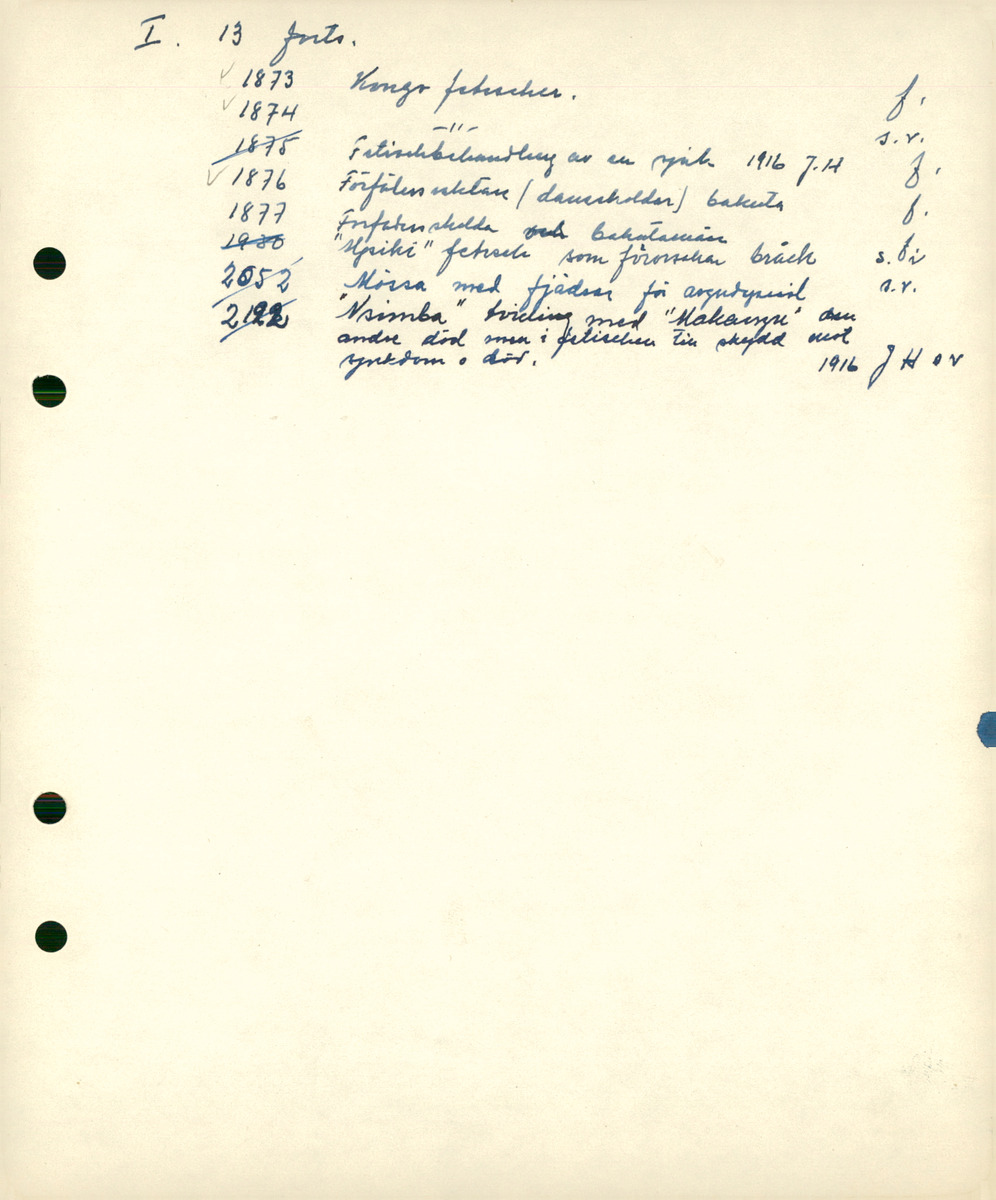 I. 13 forts.
1873 Kongo fetischer. f.
1874 -"- s.v.
1875 Fetischbehandling av en sjuk 1916 J.H f.
1876 Förfäders (dauseholdar) bakuta f.
1877 Förfäders och
1980 fetisch som förorsakar bråck s.v
2052 Mössa med fjädrar för s.v.
2122 "Nsimba" tvilling med "Makanzu" den
andre död men i fetischen till skydd mot
sjukdom o död. 1916 J H s v